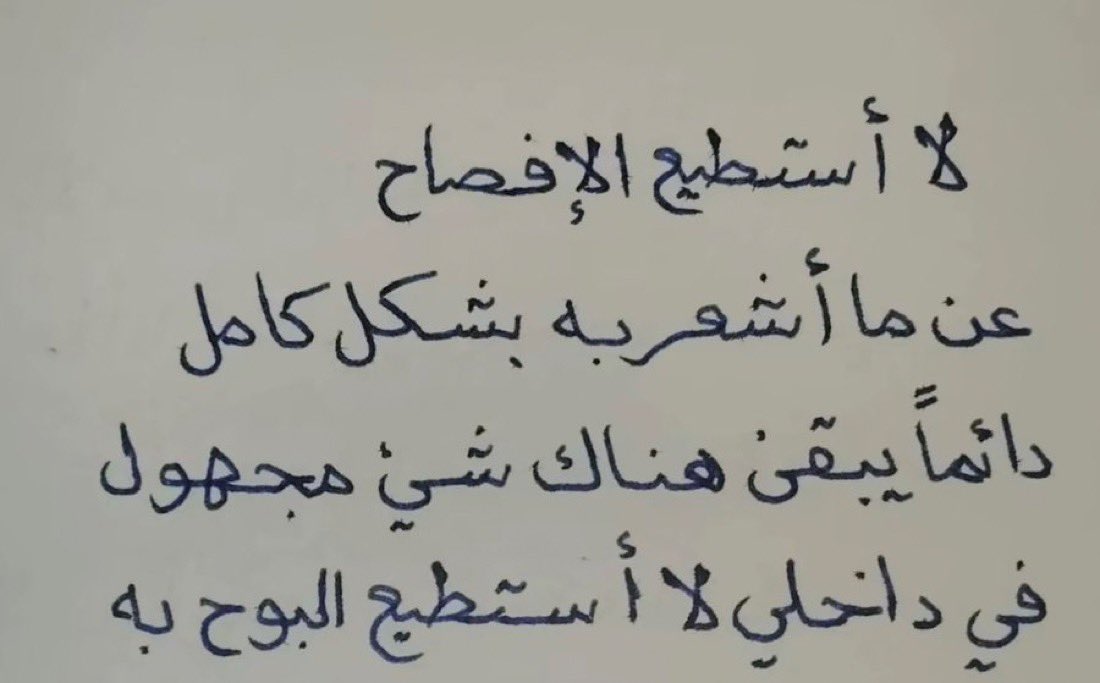 لا أستطيع الإفصاح
عن ما أشعر به بشكل كامل
دائماً يبقى هناك شيئ مجهول
في داخلي لا أستطيع البوح به